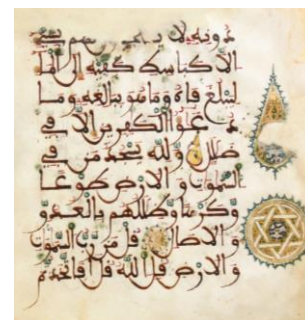 دونه لا يستجيبون لهم بشىء
الا كبسط كفيه الى الماء
ليبلغ فاه وما هو ببلغه وما
دعؤا الكفرين الا في
ضلل ولله يسجد من في
السموت والارض طوعا
وكرها وظللهم بالغدو
والاصال قل من رب السموت
والارض قل الله قل افاتخذتم